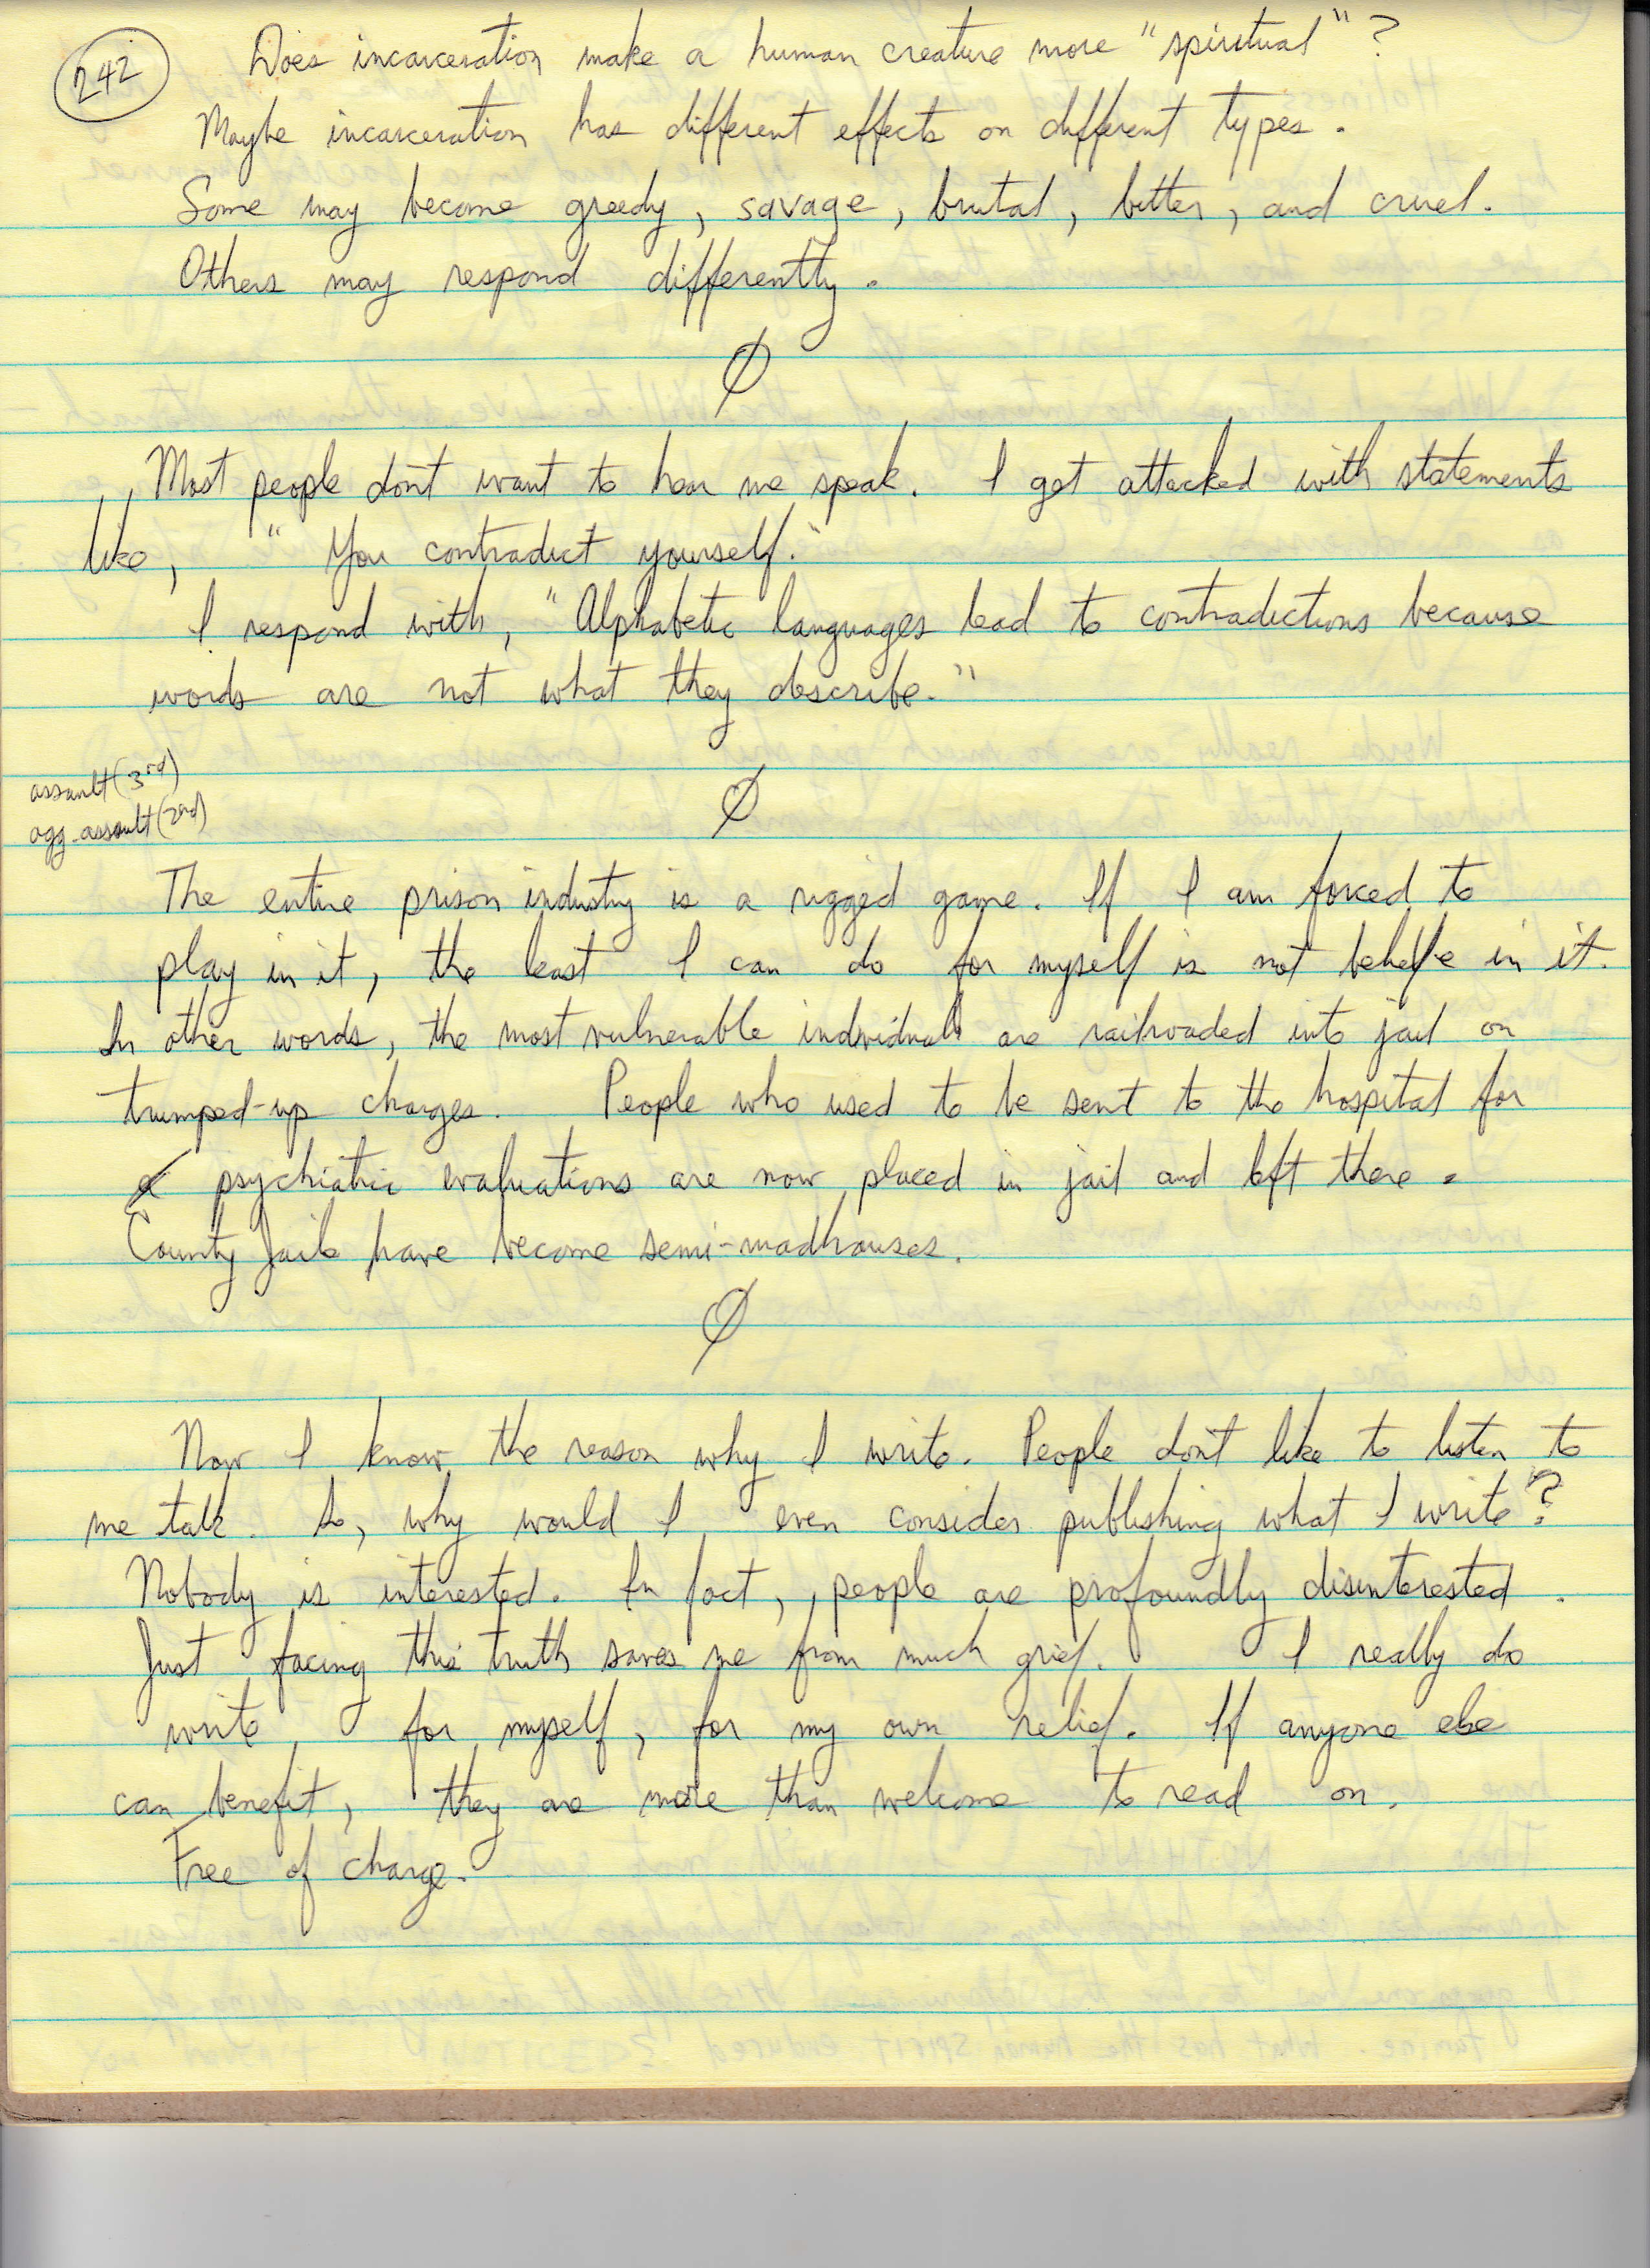 242
Does incarceration make a human creature more "spiritual"?
Maybe incarceration has different effects on different types.
Some may become greedy, savage, brutal, bitter, and cruel.
Others may respond differently.
Ø
Most people don't want to hear me speak. I get attacked with statements
like, "You contradict yourself."
I respond with, "Alphabetic languages lead to contradictions because
words are not what they describe."
assault (3rd)
agg. assault (2nd)
Ø
The entire prison industry is a rigged game. If I am forced to
play in it, the least I can do for myself is not believe in it.
In other words, the most vulnerable individuals are railroaded into jail on
trumped-up charges. People who used to be sent to the hospital for
psychiatric evaluations are now placed in jail and left there.
County Jails have become semi-madhouses.
Ø
Now I know the reason why I write. People don't like to listen to
me talk. So, why would I even consider publishing what I write?
Nobody is interested. In fact, people are profoundly disinterested.
Just facing this truth saves me from much grief. I really do
write for myself, for my own relief. If anyone else
can benefit, they are more than welcome to read on.
Free of charge.